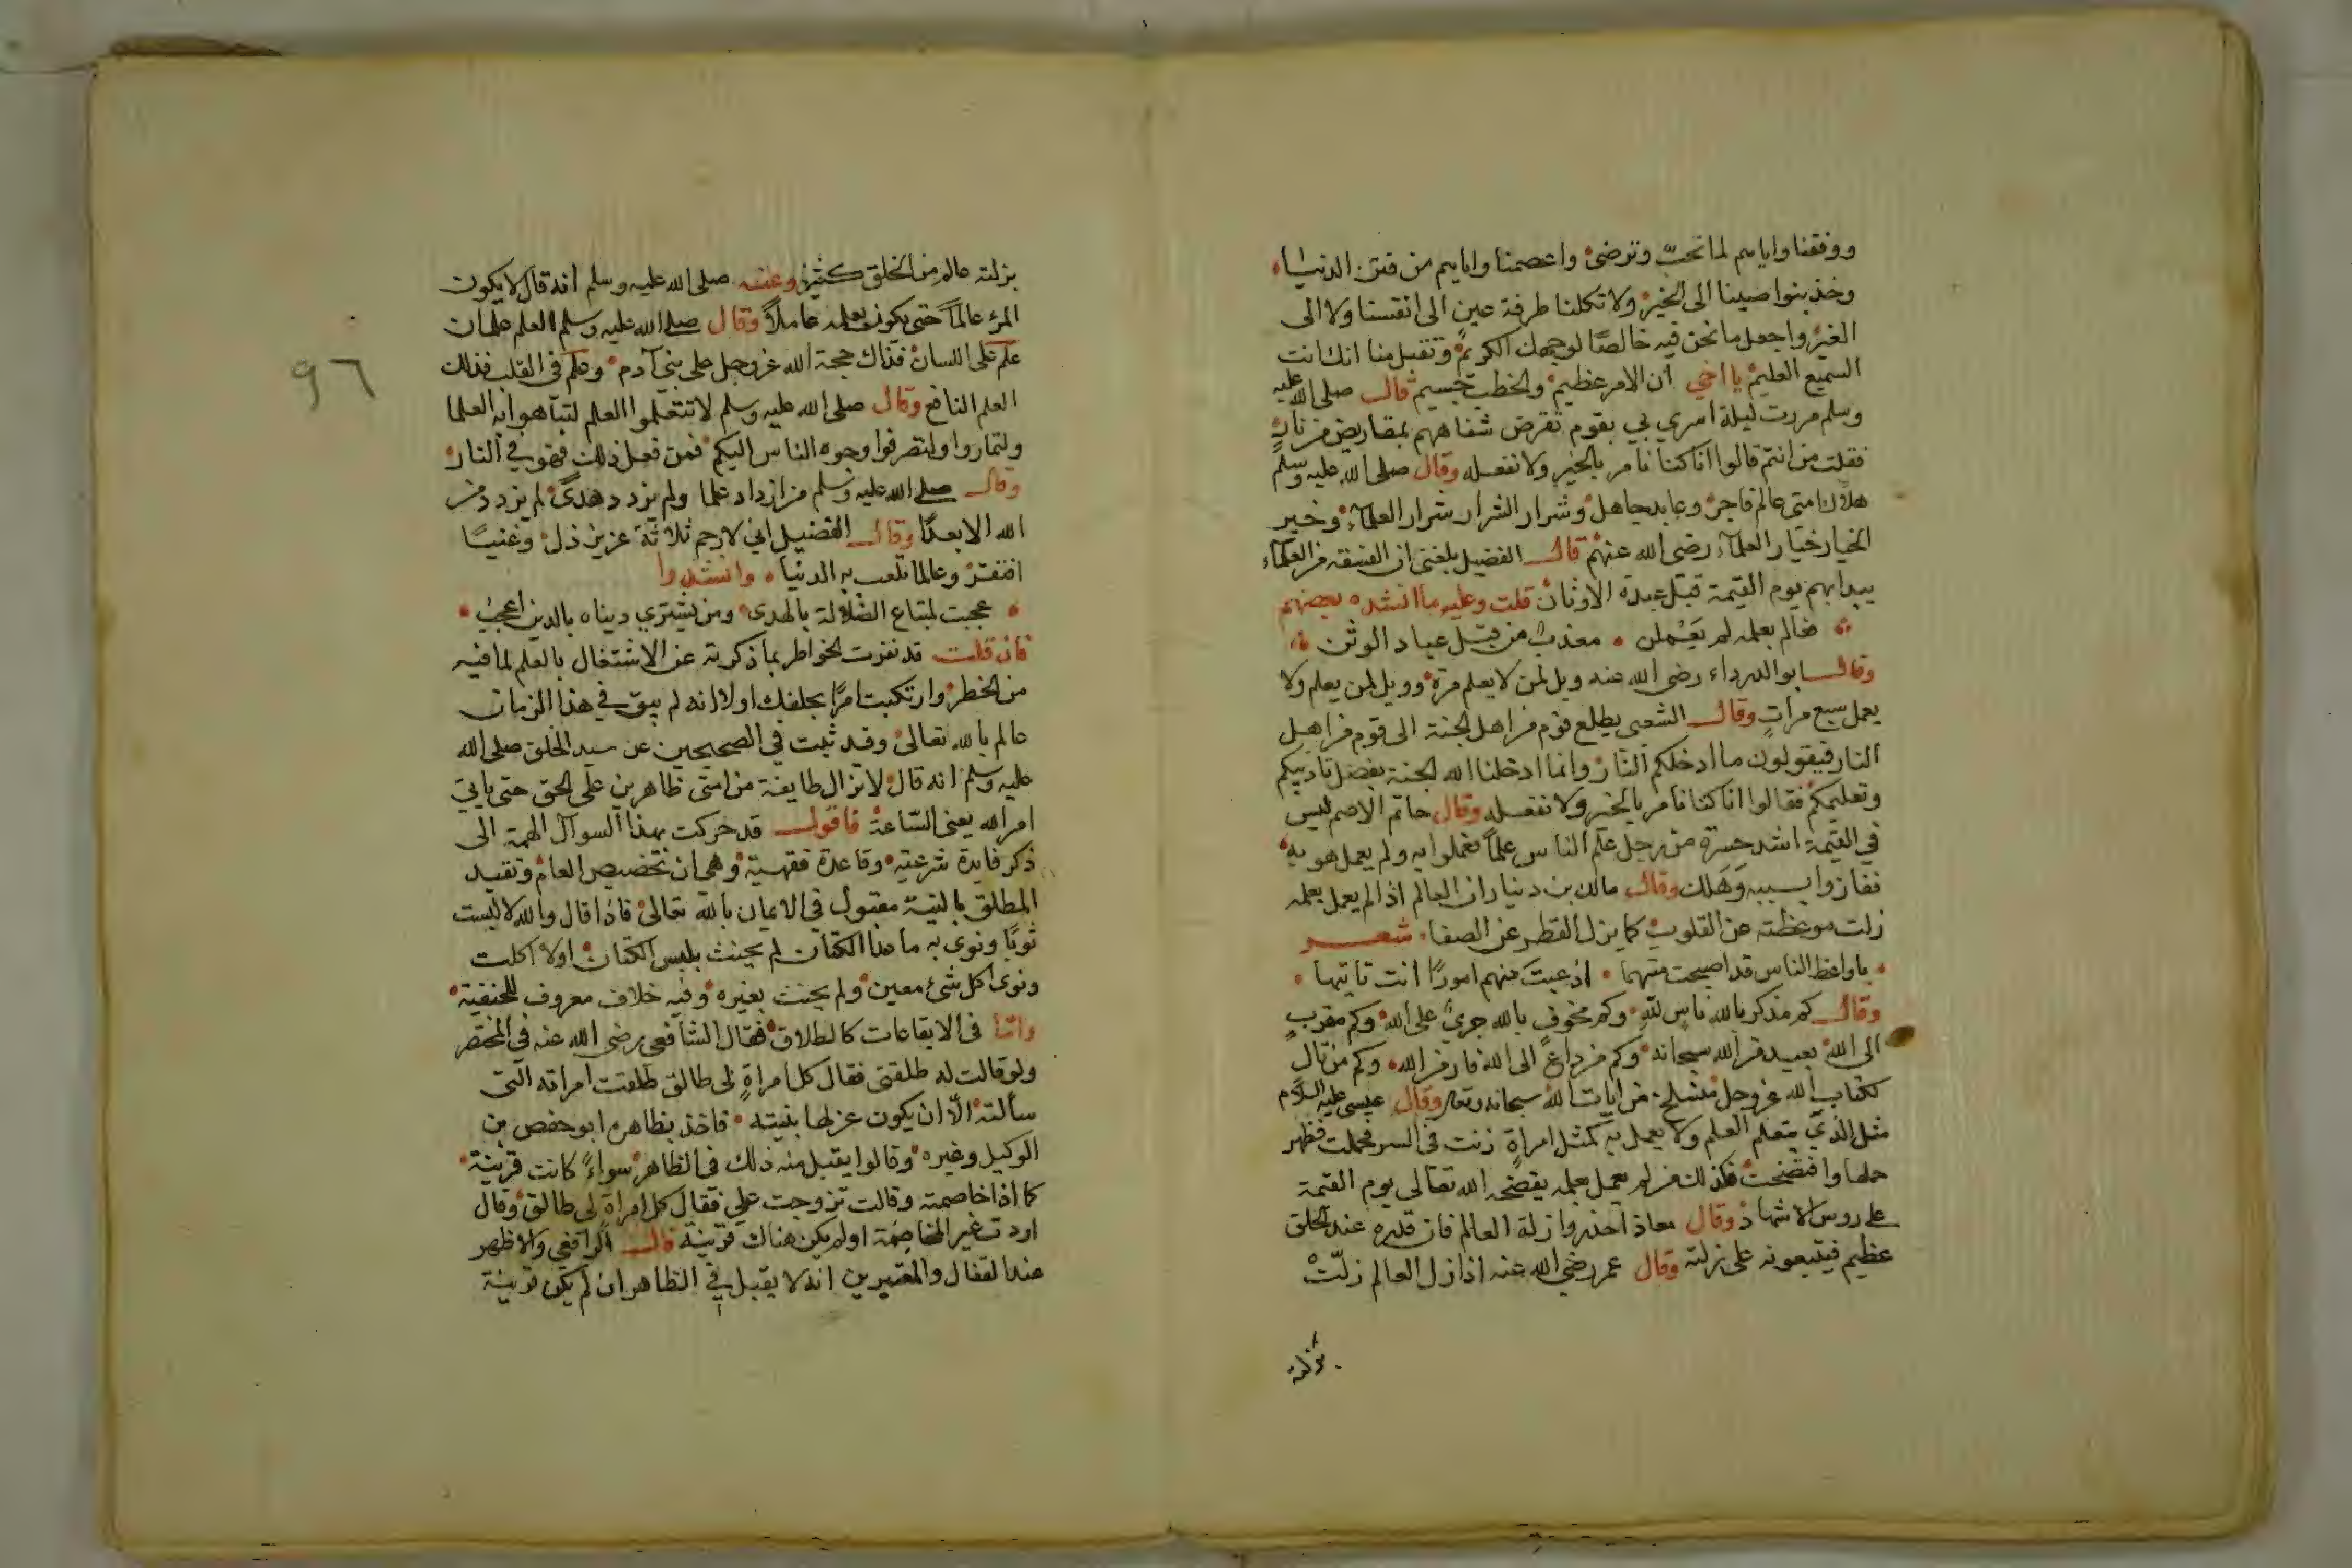 ووفقنا واياهم لما تحبّ وترضى واعصمنا واياهم من فتن الدنيا
وخذ بنواصينا الى الخير ولا تكلنا طرفة عين الى انفسنا ولا الى
الغير واجعل ما نحن فيه خالصًا لوجهك الكريم وتقبل منا انك انت
السميع العليم يا اخي ان الامر عظيم والخطب جسيم قال صلى الله عليه
وسلم مررت ليلة اسري بي بقوم تقرض شفاههم بمقاريض من نار
فقلت من انتم قالوا انا كنا نامر بالخير ولا نفعله وقال صلى الله عليه وسلم
هلاك امتى عالم فاجر وعابد جاهل وشرار الشرار شرار العلماء وخير
الخيار خيار العلماء رضى الله عنهم قال الفضيل بلغنى ان الفسقة من العلماء
يبدا بهم يوم القيمة قبل عبدة الاوثان قلت وعليه ما انشده بعضهم
فعالم بعلمه لم يَعْملن معذب من قبل عباد الوثن
وقال ابو الدرداء رضى الله عنه ويل لمن لا يعلم مرة وويل لمن يعلم ولا
يعمل سبع مرات وقال الشعبى يطلع قوم من اهل الجنة الى قوم من اهل
النار فيقولون ما ادخلكم النار وانما ادخلنا الله الجنة بفضل تاديبكم
وتعليمكم فقالوا انا كنا نامر بالخير ولا نفعله وقال حاتم الاصم ليس
في القيمة اشد حسرة من رجل علم الناس علمًا فعملوا به ولم يعمل هو به
ففازوا بسببه وَهَلك وقال مالك بن دينار ان العالم اذا لم يعمل بعلمه
زلت موعظته عن القلوب كما يزل القطر عن الصفا شعر
يا واعظ الناس قد اصبحت متهما اذ عبتَ منهم امورًا انت تاتيها
وقال كم مذكر بالله ناسٍ لله وكم مخوف بالله جرئ على الله وكم مقرب
الى الله بعيد من الله سبحانه وكم من داعٍ الى الله فار من الله وكم من تال
لكتاب الله عز وجل منسلخ من ايات الله سبحانه وتعا وقال عيسى عليه السلام
مثل الذي يتعلم العلم ولا يعمل به كمثل امراةٍ زنت فى السر فحملت فظهر
حملها وافتضحت فكذلك من لم يعمل بعلمه يفضحه الله تعالى يوم القيمة
على روس الاشهاد وقال معاذ احذروا زلة العالم فان قدره عند الخلق
عظيم فيتبعونه على زلته وقال عمر رضى الله عنه اذا زل العالم زلّت
بزلته
بزلته عالم من الخلق كثير وعنه صلى الله عليه وسلم انه قال لا يكون
المرء عالمًا حتى يكون بعلمه عاملًا وقال صلى الله عليه وسلم العلم علمان
علم على اللسان فذاك حجة الله عز وجل على بني آدم وعلم فى القلب فذلك
العلم النافع وقال صلى الله عليه وسلم لا تتعلموا العلم لتباهوا به العلما
ولتماروا ولتصرفوا وجوه الناس اليكم فمن فعل ذلك فهو في النار
وقال صلى الله عليه وسلم من ازداد علما ولم يزدد هدىً لم يزدد من
الله الا بعدًا وقال الفضيل اني لارحم ثلاثة عزيز ذل وغنيًا
افتقر وعالما تلعب به الدنيا وانشدوا
عجبت لمبتاع الضلالة بالهدى ومن يشتري دنياه بالدين اعجبُ
فان قلت قد نفرت الخواطر بما ذكرته عن الاشتغال بالعلم لما فيه
من الخطر وارتكبت امرًا بحلفك اولا انه لم يبق في هذا الزمان
عالم بالله تعالى وقد ثبت في الصحيحين عن سيد الخلق صلى الله
عليه وسلم انه قال لا تزال طايفة من امتى ظاهرين على الحق حتى ياتي
امر الله يعنى السّاعة فاقول قد حركت بهذا السوآل الهمة الى
ذكر فايدة شرعيه وقاعدة فقهية وهي ان تخصيص العام وتقييد
المطلق بالنية مقبول في الايمان بالله تعالى فاذا قال والله لا لبست
ثوبًا ونوى به ما عدا الكتان لم يحنث بلبس الكتان اولا اكلت
ونوى اكل شئ معين ولم يحنث بغيره وفيه خلاف معروف للحنفية
وامّا فى الايقاعات كالطلاق فقال الشافعى رضى الله عنه فى المختصر
ولو قالت له طلقنى فقال كل امراةٍ لى طالق طلقت امراته التى
سألته الّا ان يكون عزلها بنيته فاخذ بظاهره ابو حفص بن
الوكيل وغيره وقالوا يقبل منه ذلك فى الظاهر سواءً كانت قرينة
كما اذا خاصمته وقالت تزوجت علي فقال كل امراة لى طالق وقال
اردت غير المخاصِمَة اولم يكن هناك قرينة قال الرافعي والاظهر
عند القفال والمعتبرين انه لا يقبل في الظاهر ان لم يكن قرينة
٩٦